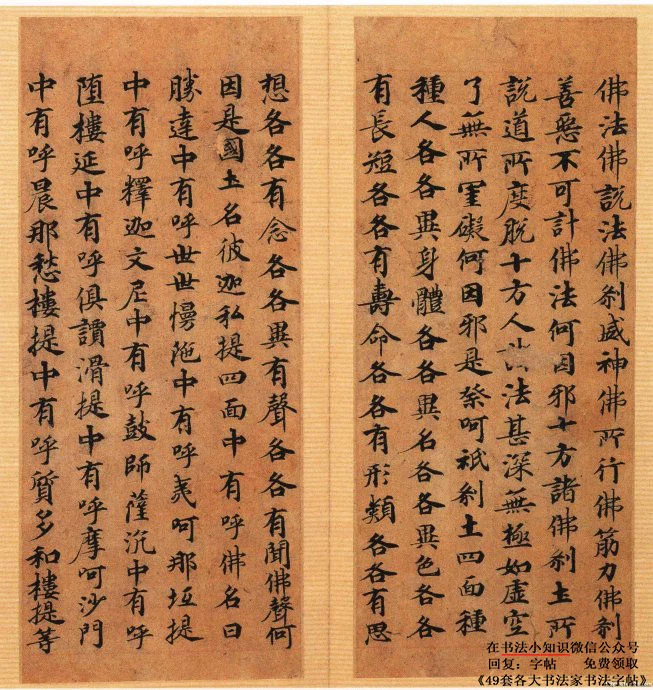 佛法佛說法佛刹威神佛所行佛筋力佛刹
善惡不可計佛法何因邪十方諸佛刹土所
說道所度脫十方人出法甚深無極如虛空
了無所罣礙何因邪是祭呵祇刹土四面種
種人各各異身體各各異名各各異色各各
有長短各各有壽命各各有形類各各有思
想各各有念各各異有聲各各有聞佛聲何
因是國土名彼迦私提四面中有呼佛名曰
勝達中有呼世世慢陁中有呼夷呵那坻提
中有呼釋迦文尼中有呼鼓師薩沉中有呼
墮樓延中有呼俱讀滑提中有呼摩呵沙門
中有呼晨那愁樓提中有呼質多和樓提等
在书法小知识微信公众号
回复：字帖 免费领取
《49套各大书法家书法字帖》